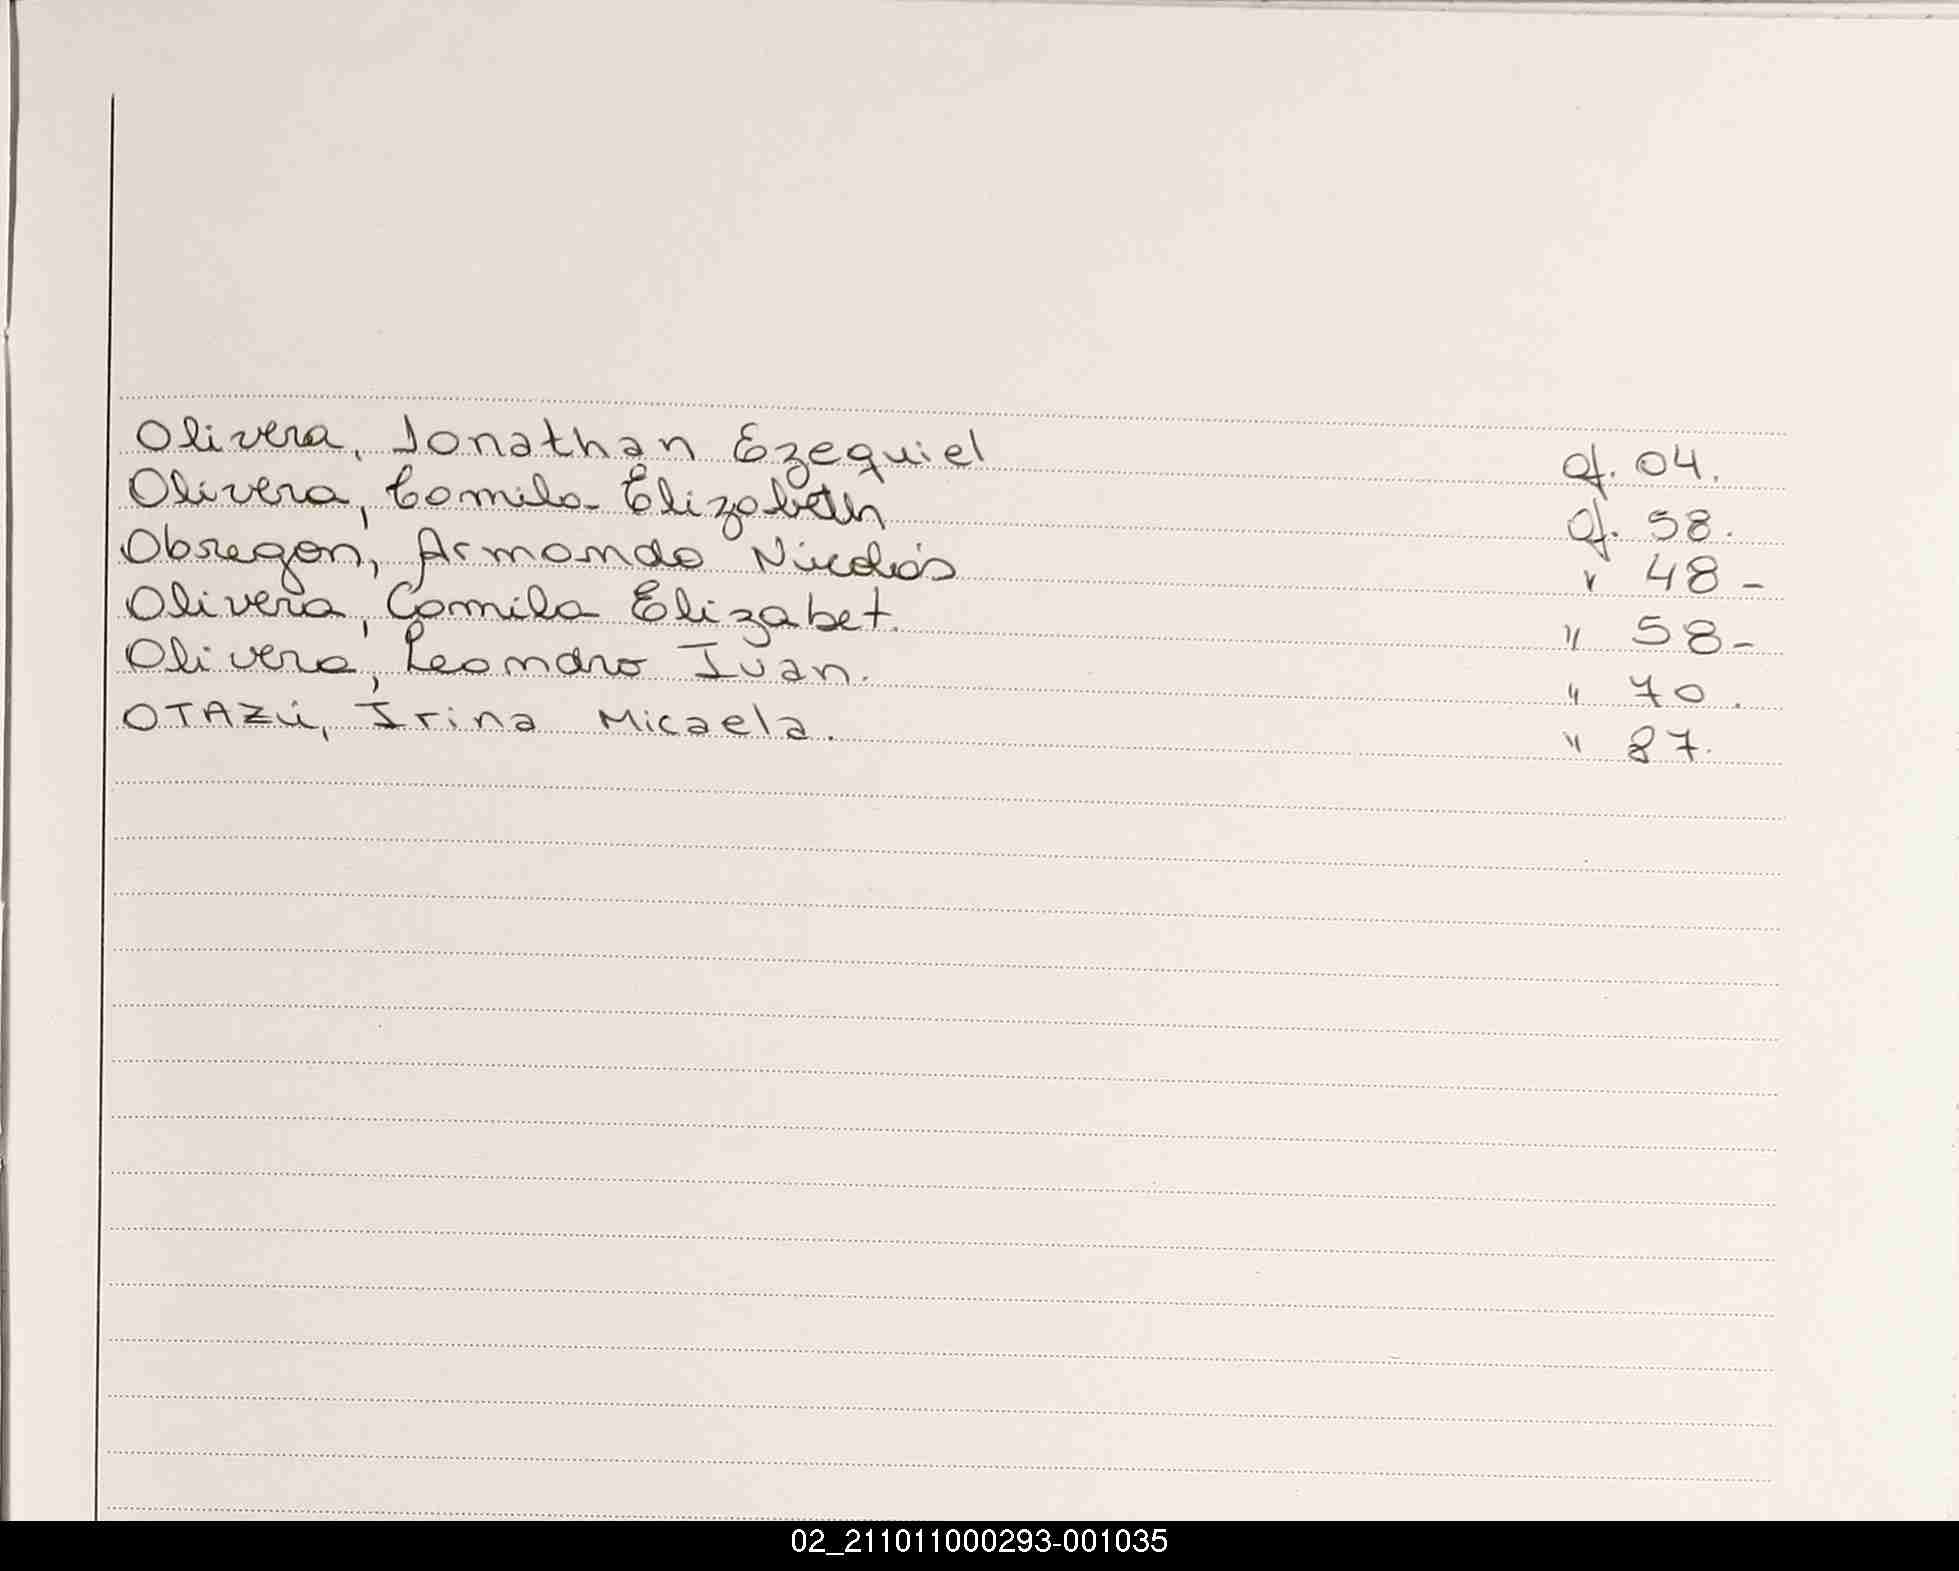 Olivera, Jonathan Ezequiel af. 04.
Olivera, Camila Elizabeth af. 58.
Obregon, Armando Nicolás " 48-
Olivera, Camila Elizabet. " 58-
Olivera, Leandro Ivan. " 70.
OTAZÚ, Irina Micaela. " 87.
02_211011000293-001035